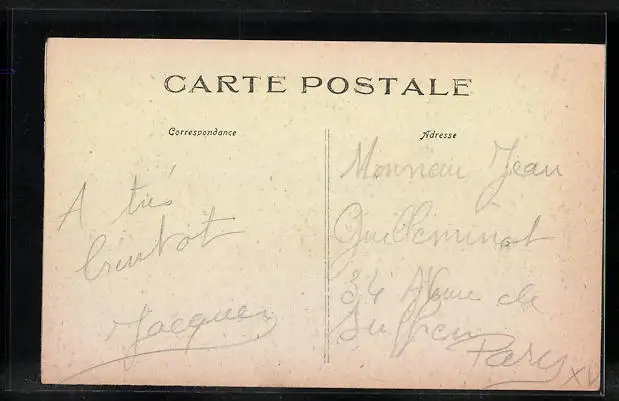 CARTE POSTALE
Correspondance
Adresse
A très
bientot
Jacques
Monsieur Jean
Guilleminot
34 Avenue de
Suffren
Paris XV